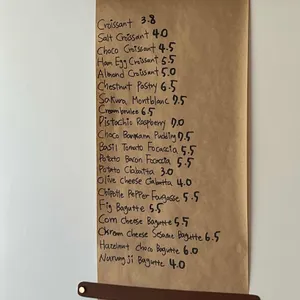 Croissant 3.8
Salt Croissant 4.0
Choco Croissant 4.5
Ham Egg Croissant 5.5
Almond Croissant 5.0
Chestnut Pastry 6.5
Sakura Montblanc 7.5
Creambrulee 6.5
Pistachio Raspberry 7.0
Choco Banana Pudding 7.5
Basil Tomato Focaccia 5.5
Potato Bacon Focaccia 5.5
Potato Ciabatta 3.0
Olive Cheese Ciabatta 4.0
Chipotle Pepper Fougasse 5.5
Fig Bagutte 5.5
Corn Cheese Bagutte 5.5
Cream Cheese Sesame Bagutte 6.5
Hazelnut Choco Bagutte 6.0
Nurungji Bagutte 4.0